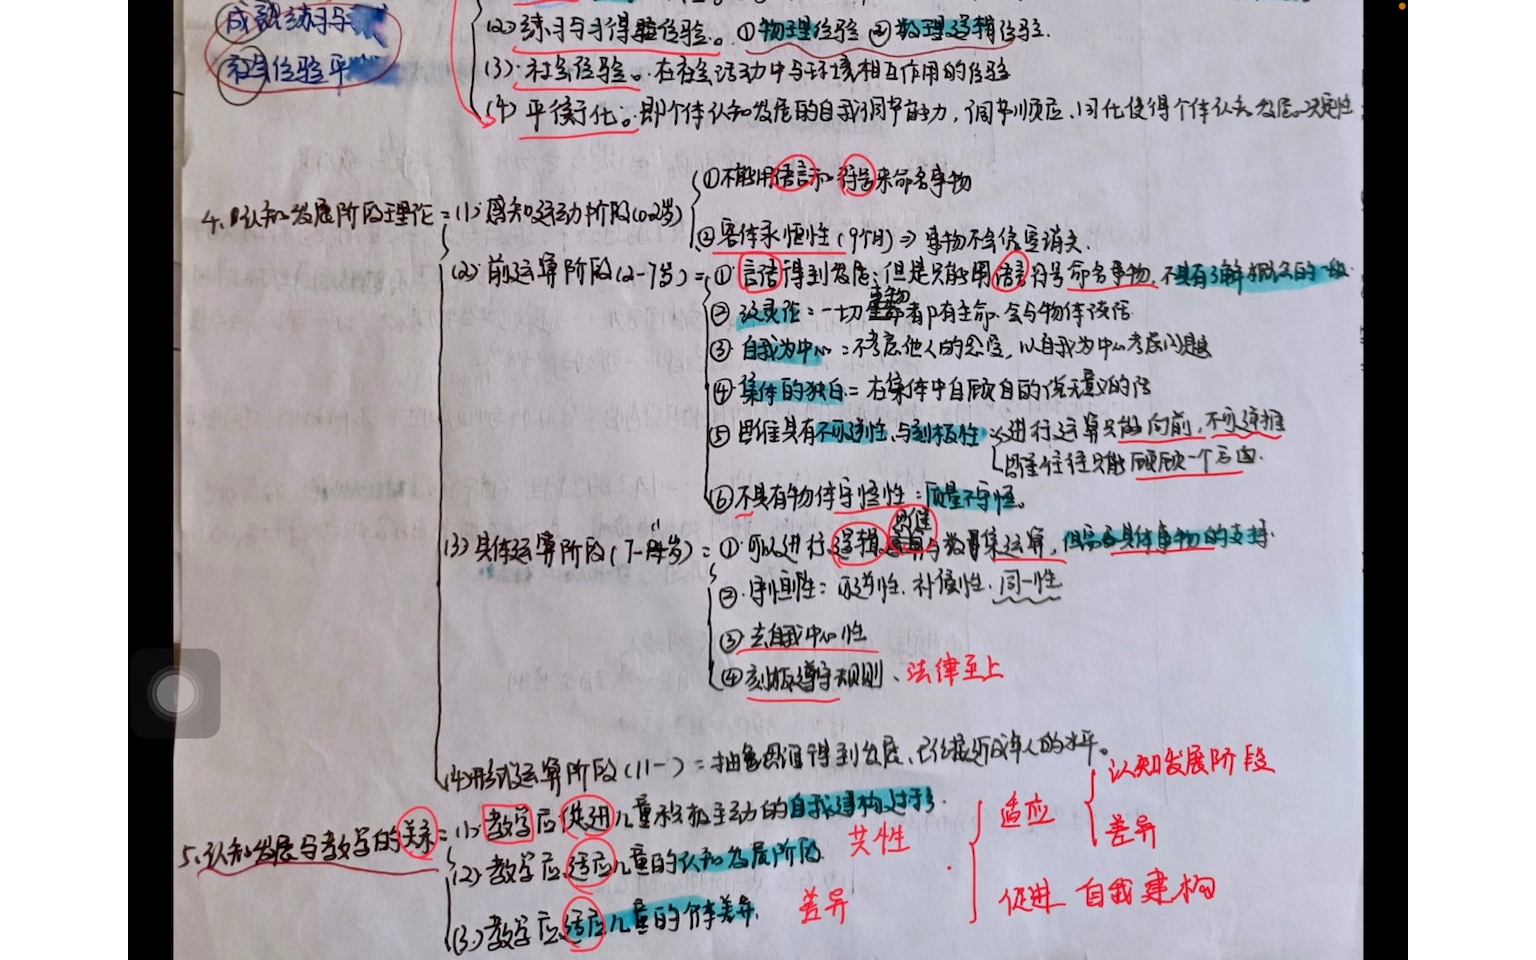 成熟练习与
社会经验平
(2)·练习与习得经验。①物理经验 ②数理逻辑经验.
(3)·社会经验。·在社会活动中与环境相互作用的经验
(4) 平衡化。·即个体认知发展的自我调节能力,调节顺应、同化使得个体认知发展
4、认知发展阶段理论 = (1)·感知运动阶段(0-2岁)
①不能用语言和符号来命名事物
②客体永恒性(9个月) ⇒ 事物不会
消失.
(2)·前运算阶段(2-7岁) = ①·言语得到发展;但是只能用语言符号命名事物,不具有了解概念的一般
② 泛灵论:一切事物都有生命.会与物体谈话
③ 自我为中心:不考虑他人的态度,以自我为中心考虑问题
④ 集体的独白 = 在集体中自顾自的说无意义的话
⑤ 思维具有不可逆性、与刻板性
进行运算只能向前,不可逆推
思维往往只能顾及一个方面.
⑥不具有物体守恒性:质量不守恒。
(3)·具体运算阶段(7-11岁) = ①·可以进行逻辑思维与
运算,但需要具体事物的支持.
②·守恒性:可逆性、补偿性、同一性
③·去自我中心性
④刻板遵守规则、法律至上
(4)形式运算阶段(11-) = 抽象思维得到发展、已经接近成年人的水平。
5、认知发展与教学的关系 = (1)·教学应促进儿童积极主动的自我建构过于.
(2)教学应适应儿童的认知发展阶段. 共性
(3)·教学应适应儿童的个体差异. 差异
适应
认知发展阶段
差异
促进 自我建构